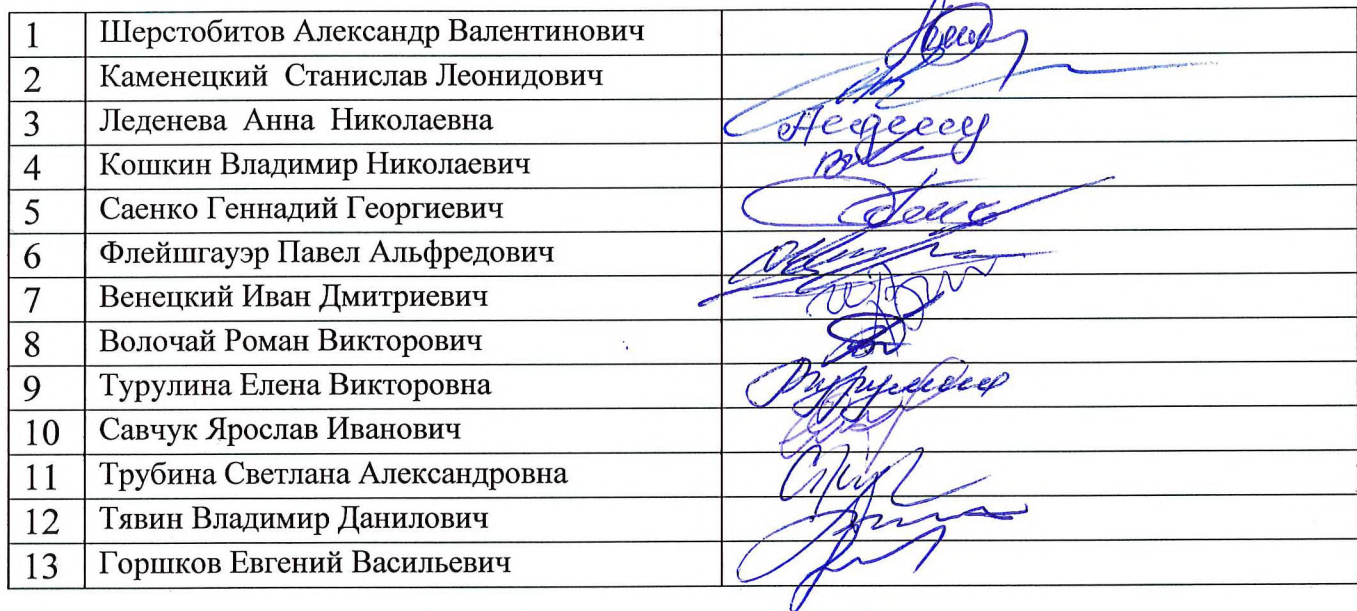 1 Шерстобитов Александр Валентинович
2 Каменецкий Станислав Леонидович
3 Леденева Анна Николаевна
4 Кошкин Владимир Николаевич
5 Саенко Геннадий Георгиевич
6 Флейшгауэр Павел Альфредович
7 Венецкий Иван Дмитриевич
8 Волочай Роман Викторович
9 Турулина Елена Викторовна
10 Савчук Ярослав Иванович
11 Трубина Светлана Александровна
12 Тявин Владимир Данилович
13 Горшков Евгений Васильевич